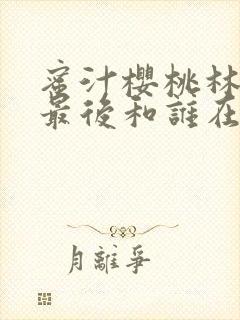 蜜汁櫻桃林
最後和誰在
月離爭